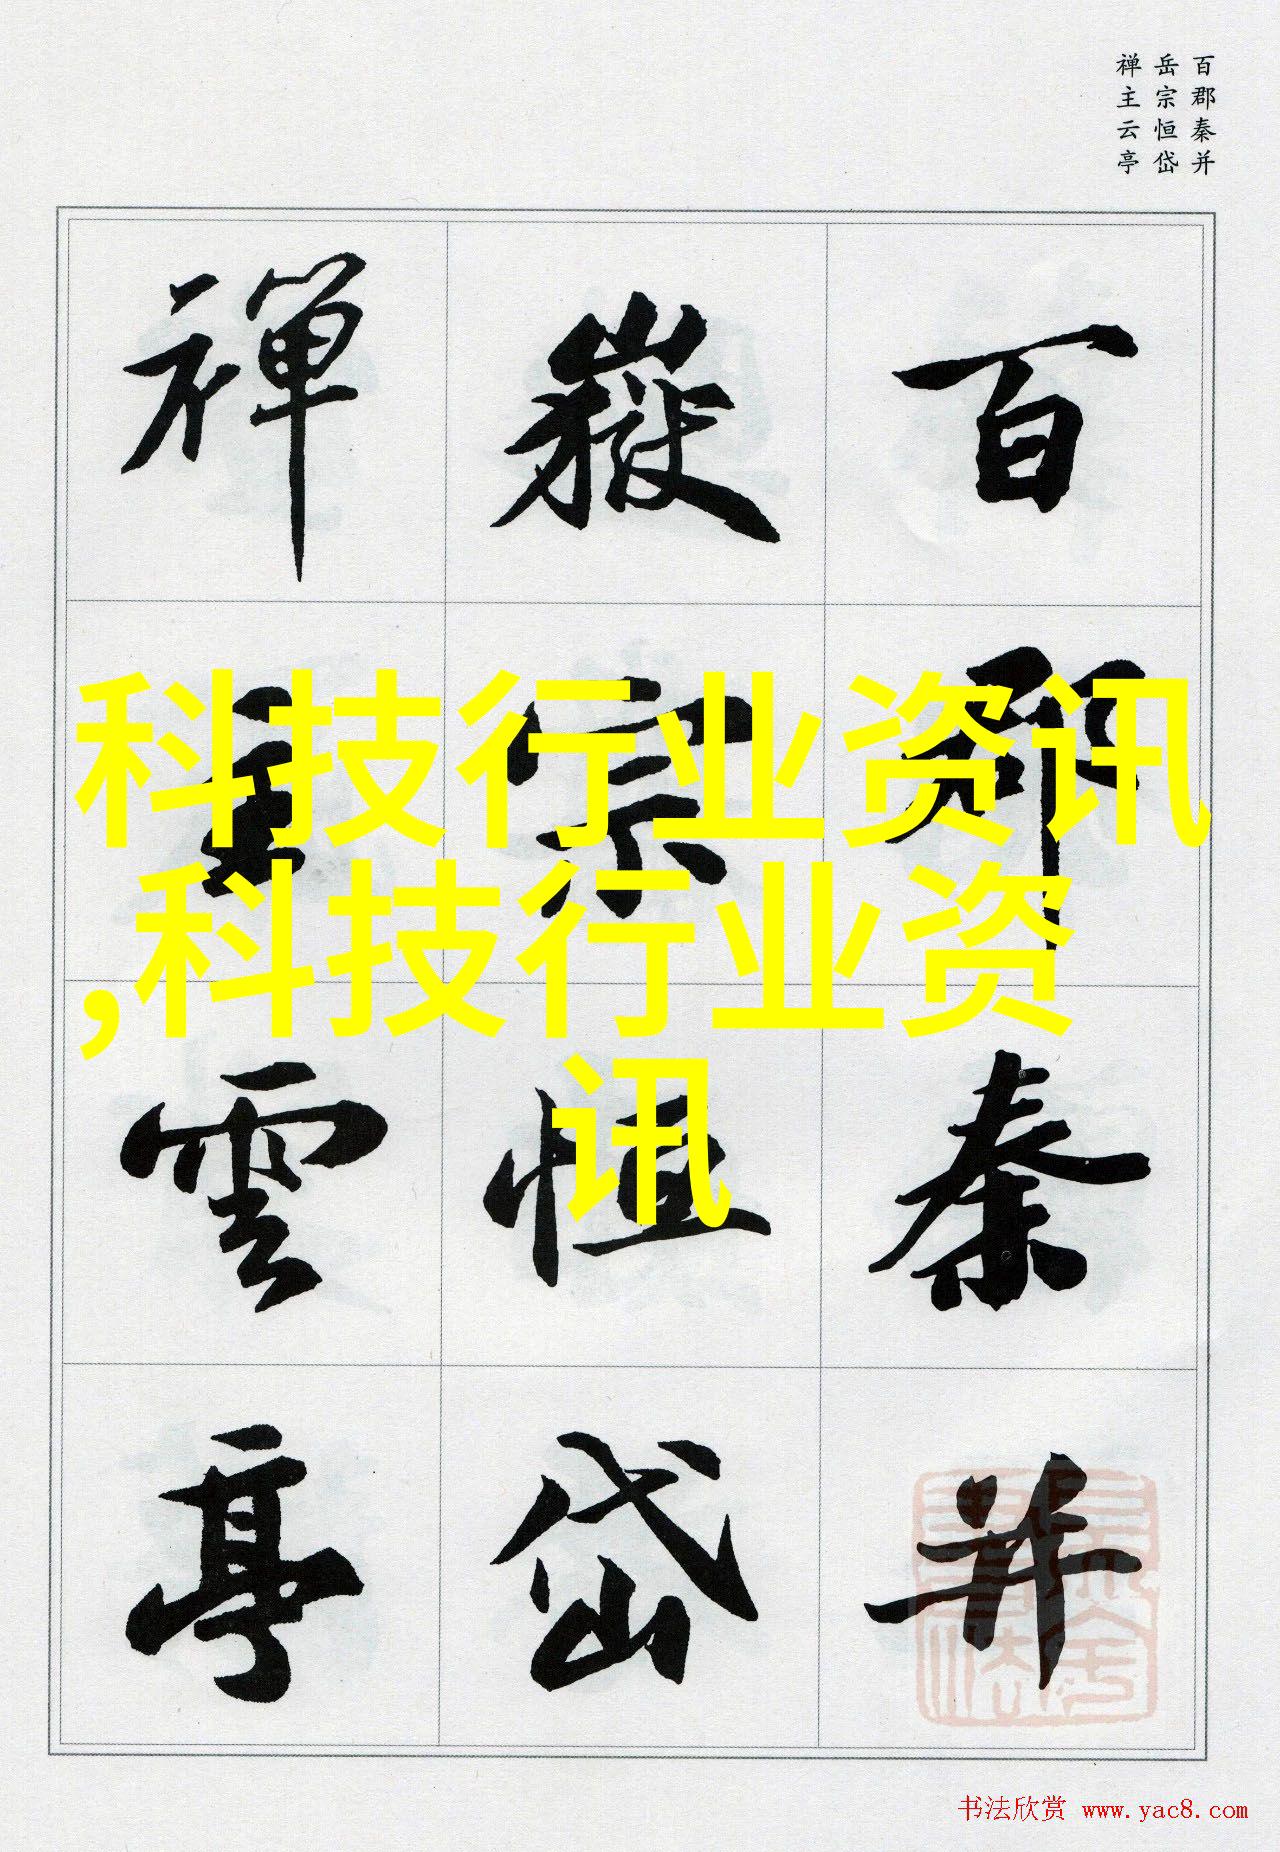 百郡秦并
岳宗恒岱
禅主云亭
百郡秦并
嶽宗恒岱
禅主雲亭
科技行业资讯
,科技行业资
讯
书法欣赏 www.yac8.com